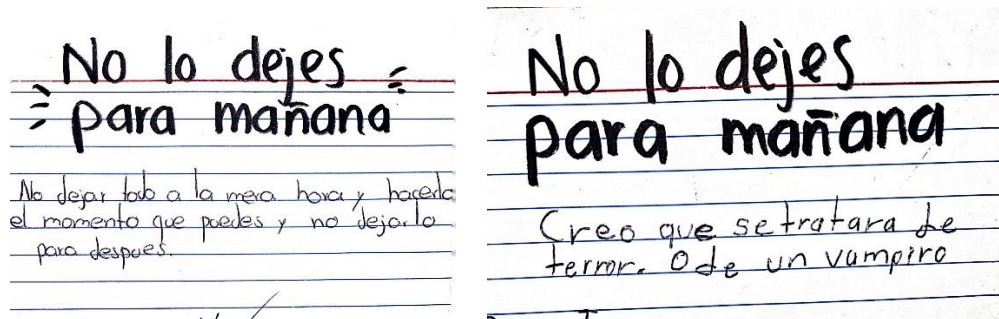 No lo dejes
para mañana
No dejar todo a la mera hora y hacerlo
el momento que puedes y no dejarlo
para despues.
No lo dejes
para mañana
Creo que se tratara de
terror. O de un vampiro